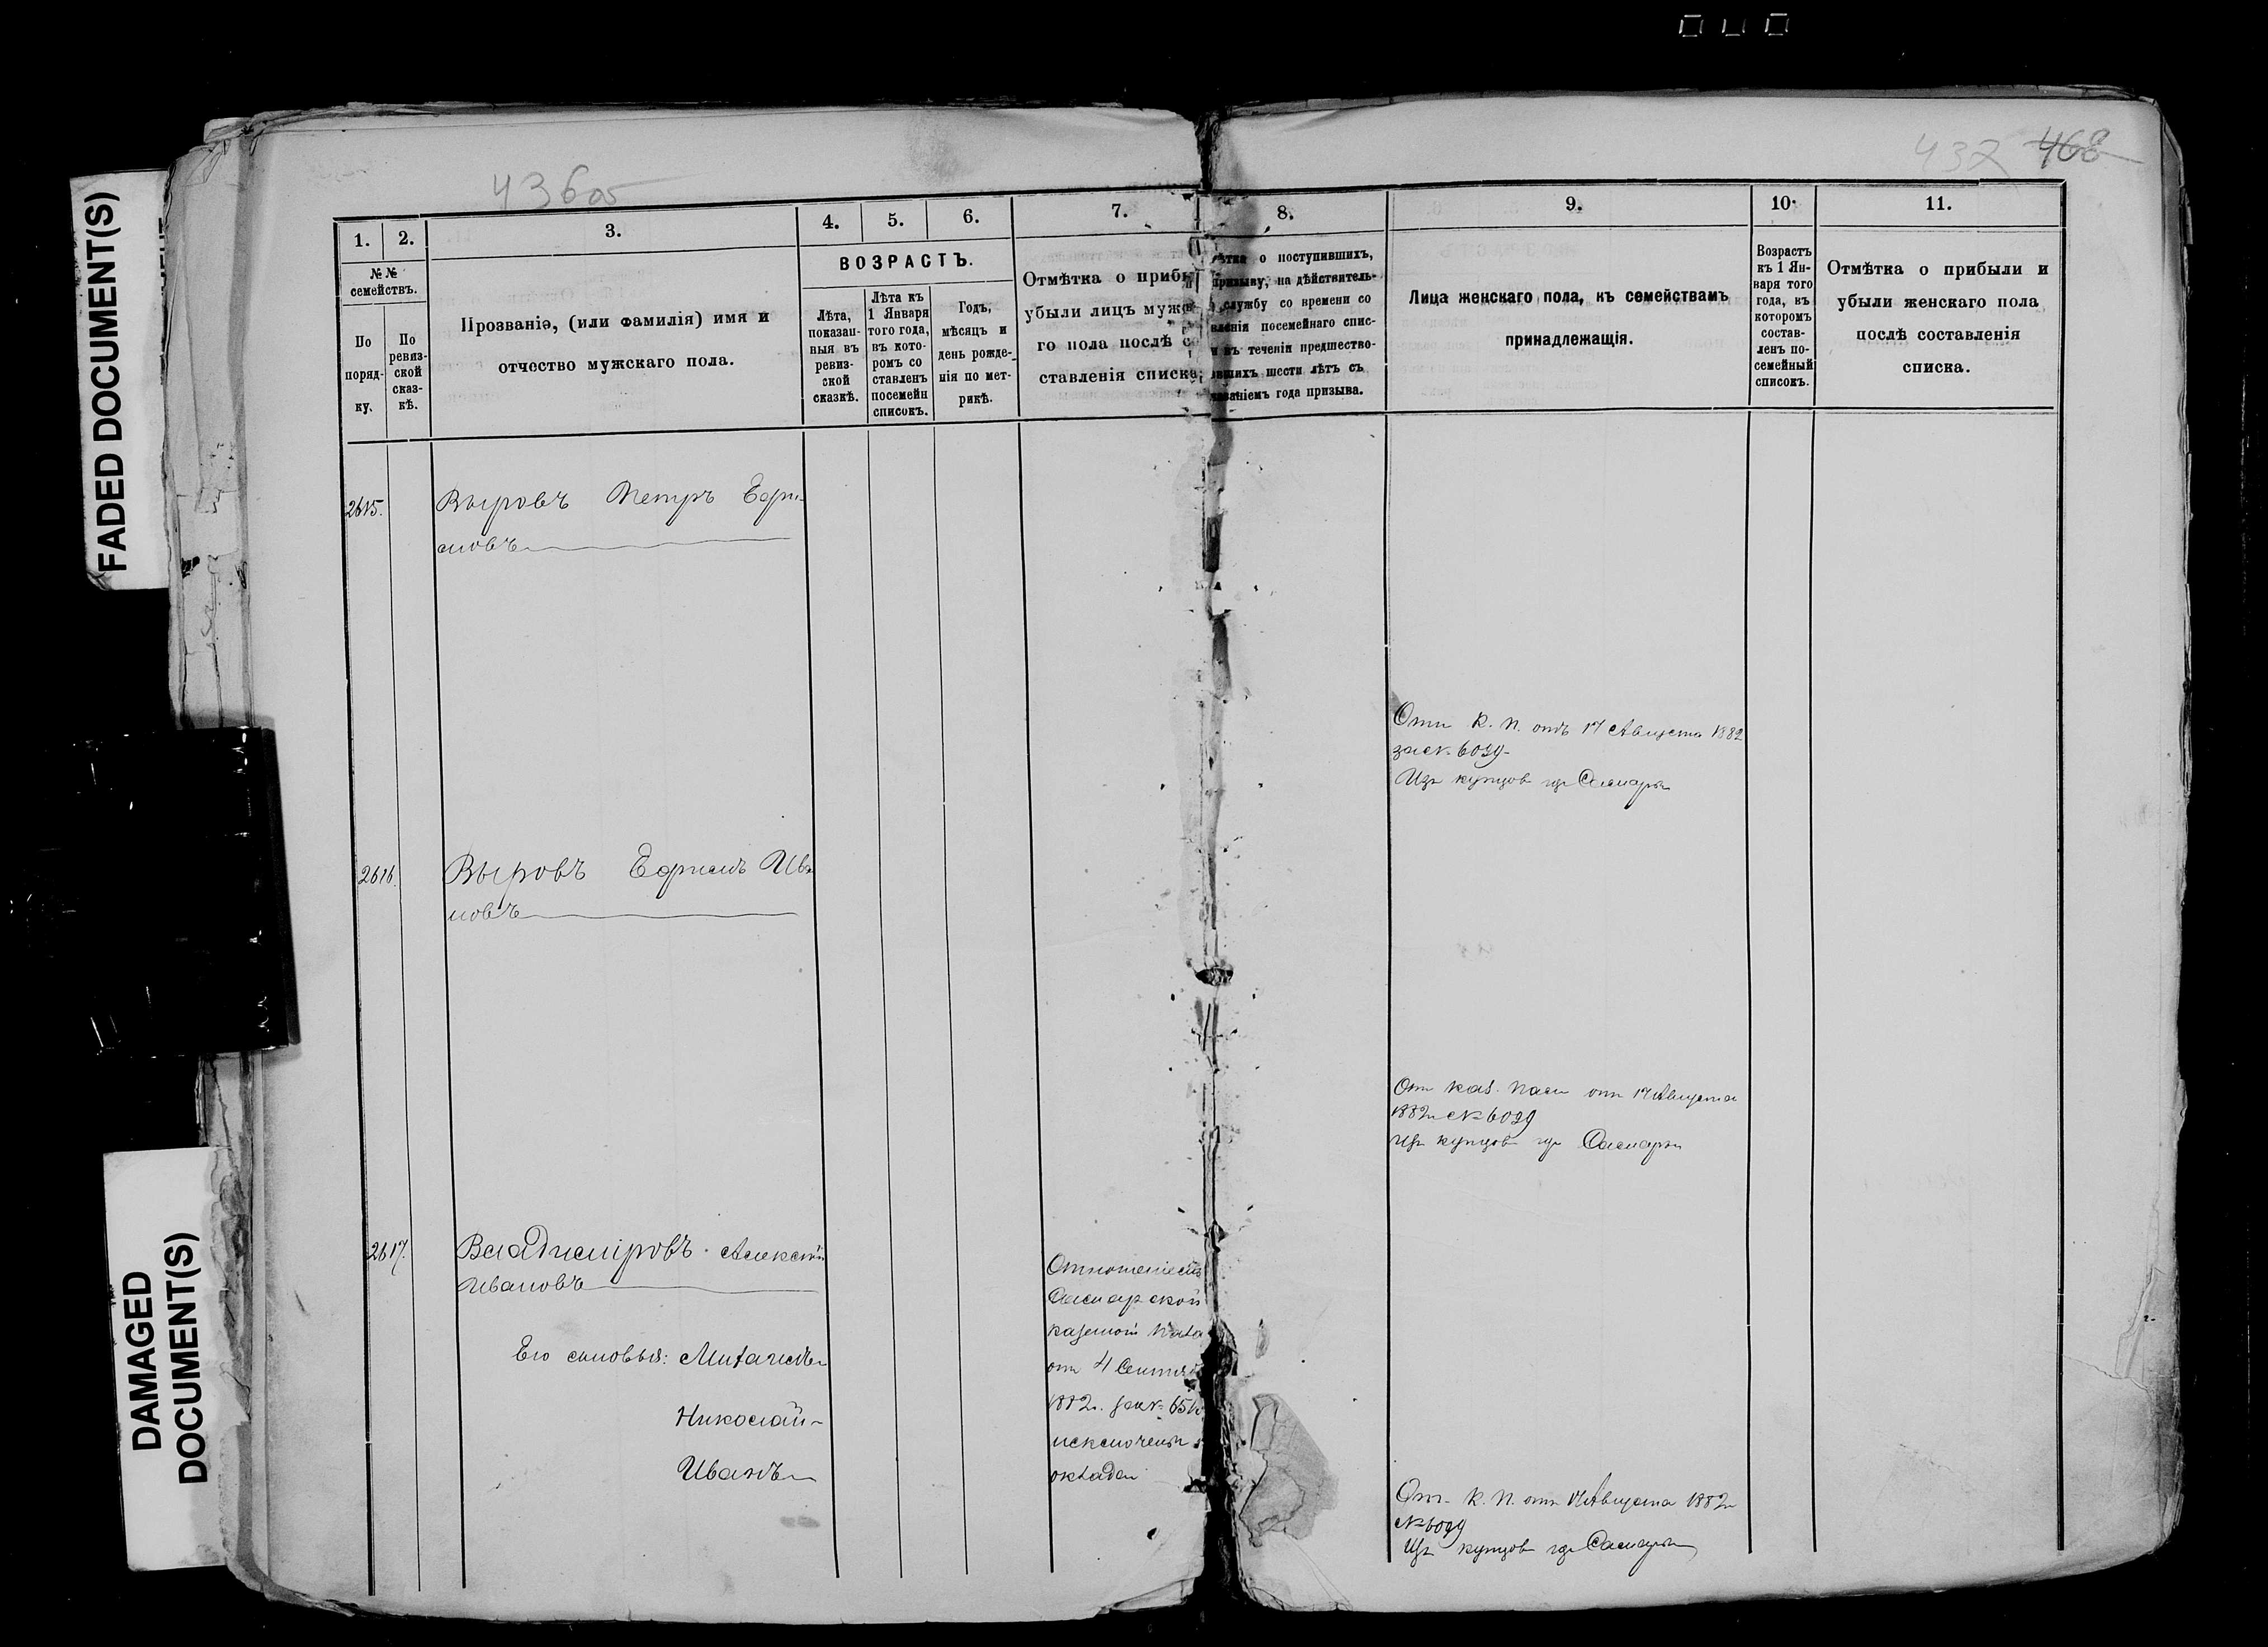 FADED DOCUMENT(S)
DAMAGED
DOCUMENT(S)
436об
437 468
1.
2.
3.
4.
5.
6.
7.
8.
9.
10.
11.
№№
семействъ.
По
поряд-
ку.
По
ревиз-
ской
сказ-
кѣ.
Прозваніе, (или фамилія) имя и
отчество мужскаго пола.
ВОЗРАСТЪ.
Лѣта,
показан-
ныя въ
ревиз-
ской
сказкѣ.
Лѣта къ
1 Января
того года,
въ кото-
ромъ со
ставленъ
посемейн
списокъ.
Годъ,
мѣсяцъ и
день рожде-
нія по мет-
рикѣ.
Отмѣтка о прибы
убыли лицъ муж
го пола послѣ с
ставленія списка
о поступившихъ,
призыву, на дѣйствитель-
службу со времени со
вленія посемейнаго спис-
въ теченіи предшество-
вшихъ шести лѣтъ съ
казаніемъ года призыва.
Лица женскаго пола, къ семействамъ
принадлежащія.
Возрастъ
къ 1 Ян-
варя того
года, въ
которомъ
состав-
ленъ по-
семейный
списокъ.
Отмѣтка о прибыли и
убыли женскаго пола
послѣ составленія
списка.
2615.
Выровъ Петръ Ефи-
мовъ
От К. П. отъ 17 Августа 1882
за № 6029
Изъ купцов гор Самары
2616.
Выровъ Ефимъ Ива
новъ
От каз. Пал от 17 Августа
1882 г № 6029
Из купцов гор Самары
2617.
Владиміровъ Алексѣй
Ивановъ
Его сыновья: Михаилъ
Николай
Иванъ
Отношеніемъ
Самарской
казенной Пала
от 4 Сентяб
1882 г. за №
исключены
оклада
От К. П. от 17 Августа 1882 г
№ 6029
Из купцов гор Самары